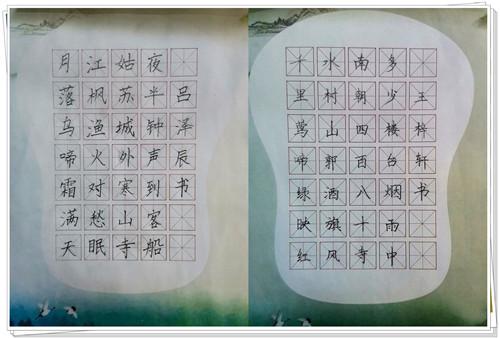 月落乌啼霜满天
江枫渔火对愁眠
姑苏城外寒山寺
夜半钟声到客船
吕泽辰书
千里莺啼绿映红
水村山郭酒旗风
南朝四百八十寺
多少楼台烟雨中
王梓轩书